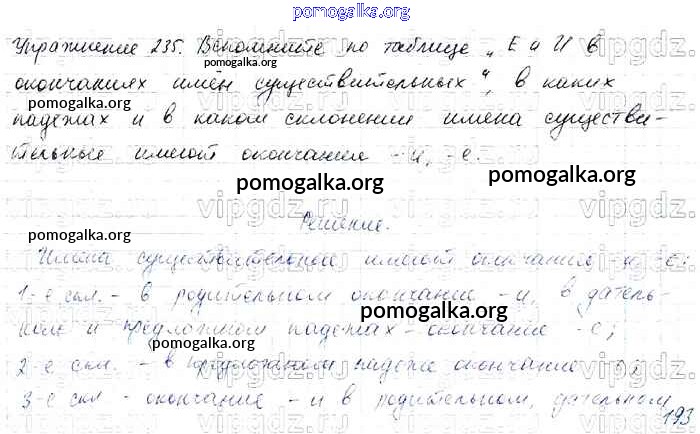 pomogalka.org
Упражнение 235. Вспомните по таблице „Е и И в
pomogalka.org
окончаниях имён существительных“, в каких
pomogalka.org
падежах и в каком склонении имена существи-
тельные имеют окончания -и, -е.
pomogalka.org
pomogalka.org
Решение.
pomogalka.org
Имена существительное имеют окончание -и -е:
1-е скл. - в родительном окончание -и, в датель-
pomogalka.org
ном и предложном падежах - окончание -е;
pomogalka.org
2-е скл. - в предложном падеже окончание
3-е скл - окончание -и в родительном, дательном
193